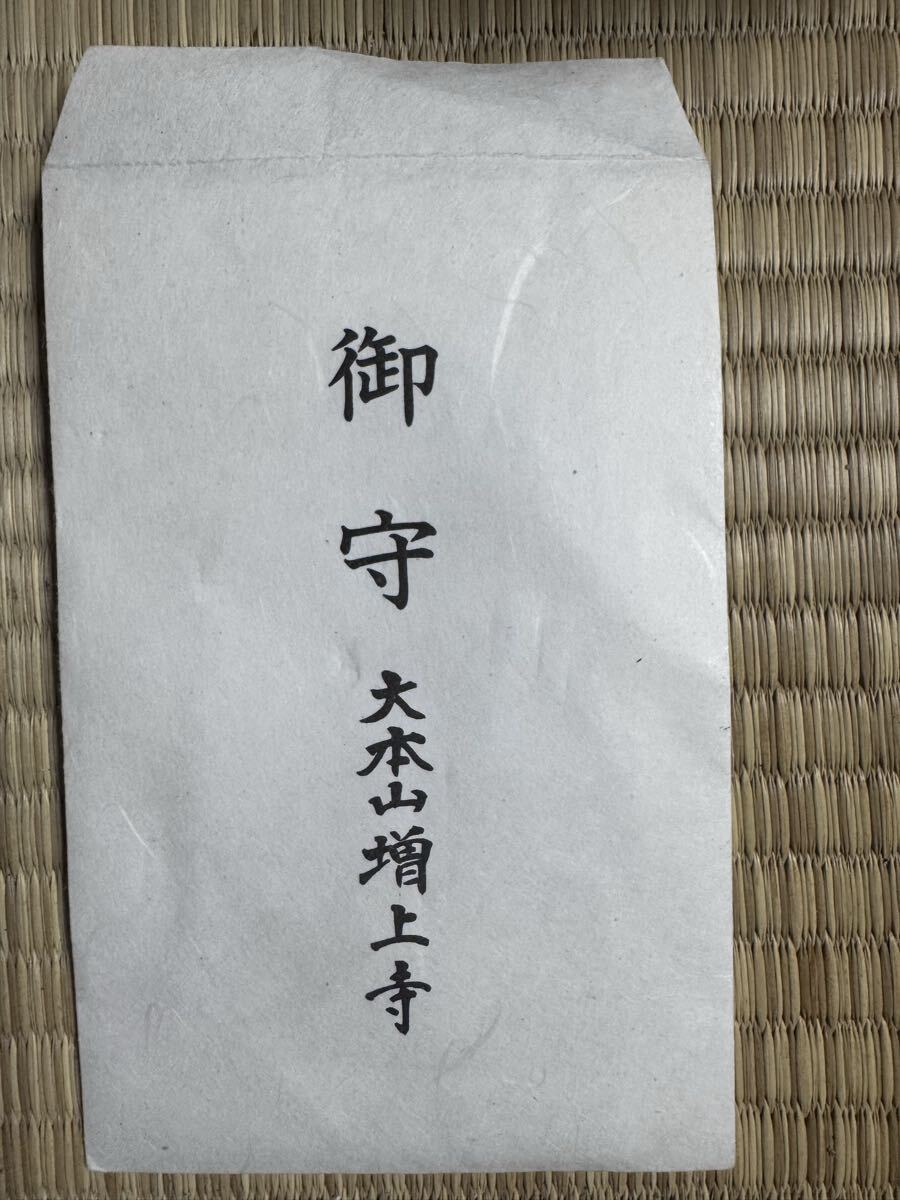 御守
大本山増上寺